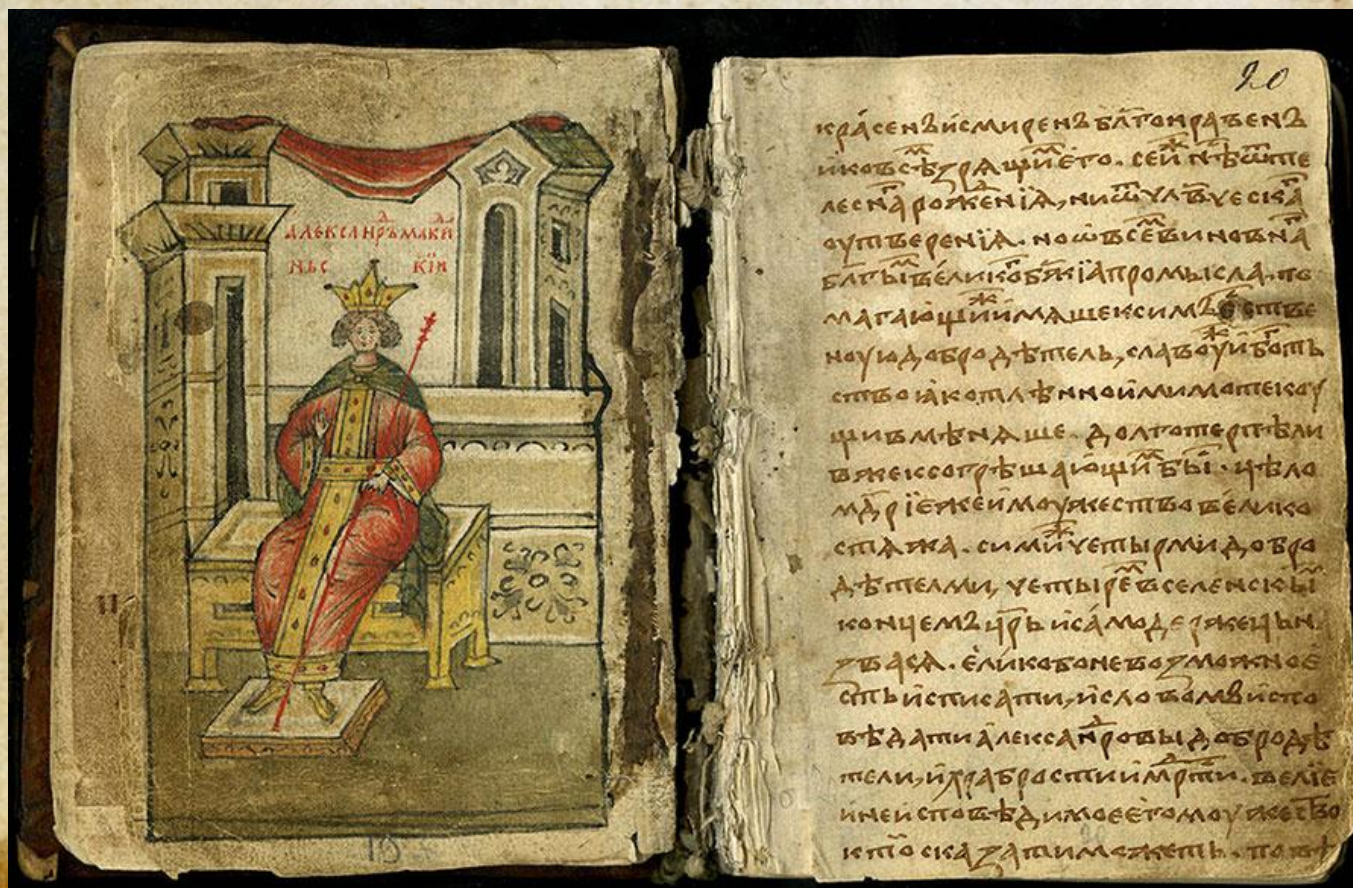 а҆леѯанⷣръ макиⷣ
ньс кїи
20
кра́сенъ и҆смиренъ бл҃гонравенъ
иковсѣⷨ зрѧщиⷨ є҆го. сеиⷤ нѣѿте
леснаⷢ роже́нїѧ, ниѿ чл҃вческаⷢ
оутверенїѧ. но ѡ҆всеⷨвиновнаⷢ
бл҃гыⷨ великоⷢ бж҃їа промысла. по
магающиⷤ и҆мѧше ксимъ єстве
ноую добродѣтель, славоуⷤ и бог҃ть
ство ꙗ҆ко тлѣнно и҆мимотекоу
щи вмѣнѧше. долготерпѣли
вже ксогрѣшающиⷨ бы. цѣло
мⷣрїе же и҆моужество велико
стѧжа. симиⷤ четырми добро
дѣтелми, четыреⷨ вселенскыⷨ
конц҃емъ цр҃ь и҆са́модержецьн
зва сѧ. є҆лико бо невозможно є҆
сть и҆списати, и҆словомъ испо
вѣдати а҆лекса́нⷣровы добродѣ
тели, и҆храбрости и҆мⷣрти. велїе
и҆неисповѣдимое є҆го моужество
кто сказати можеть. по вѣ
11